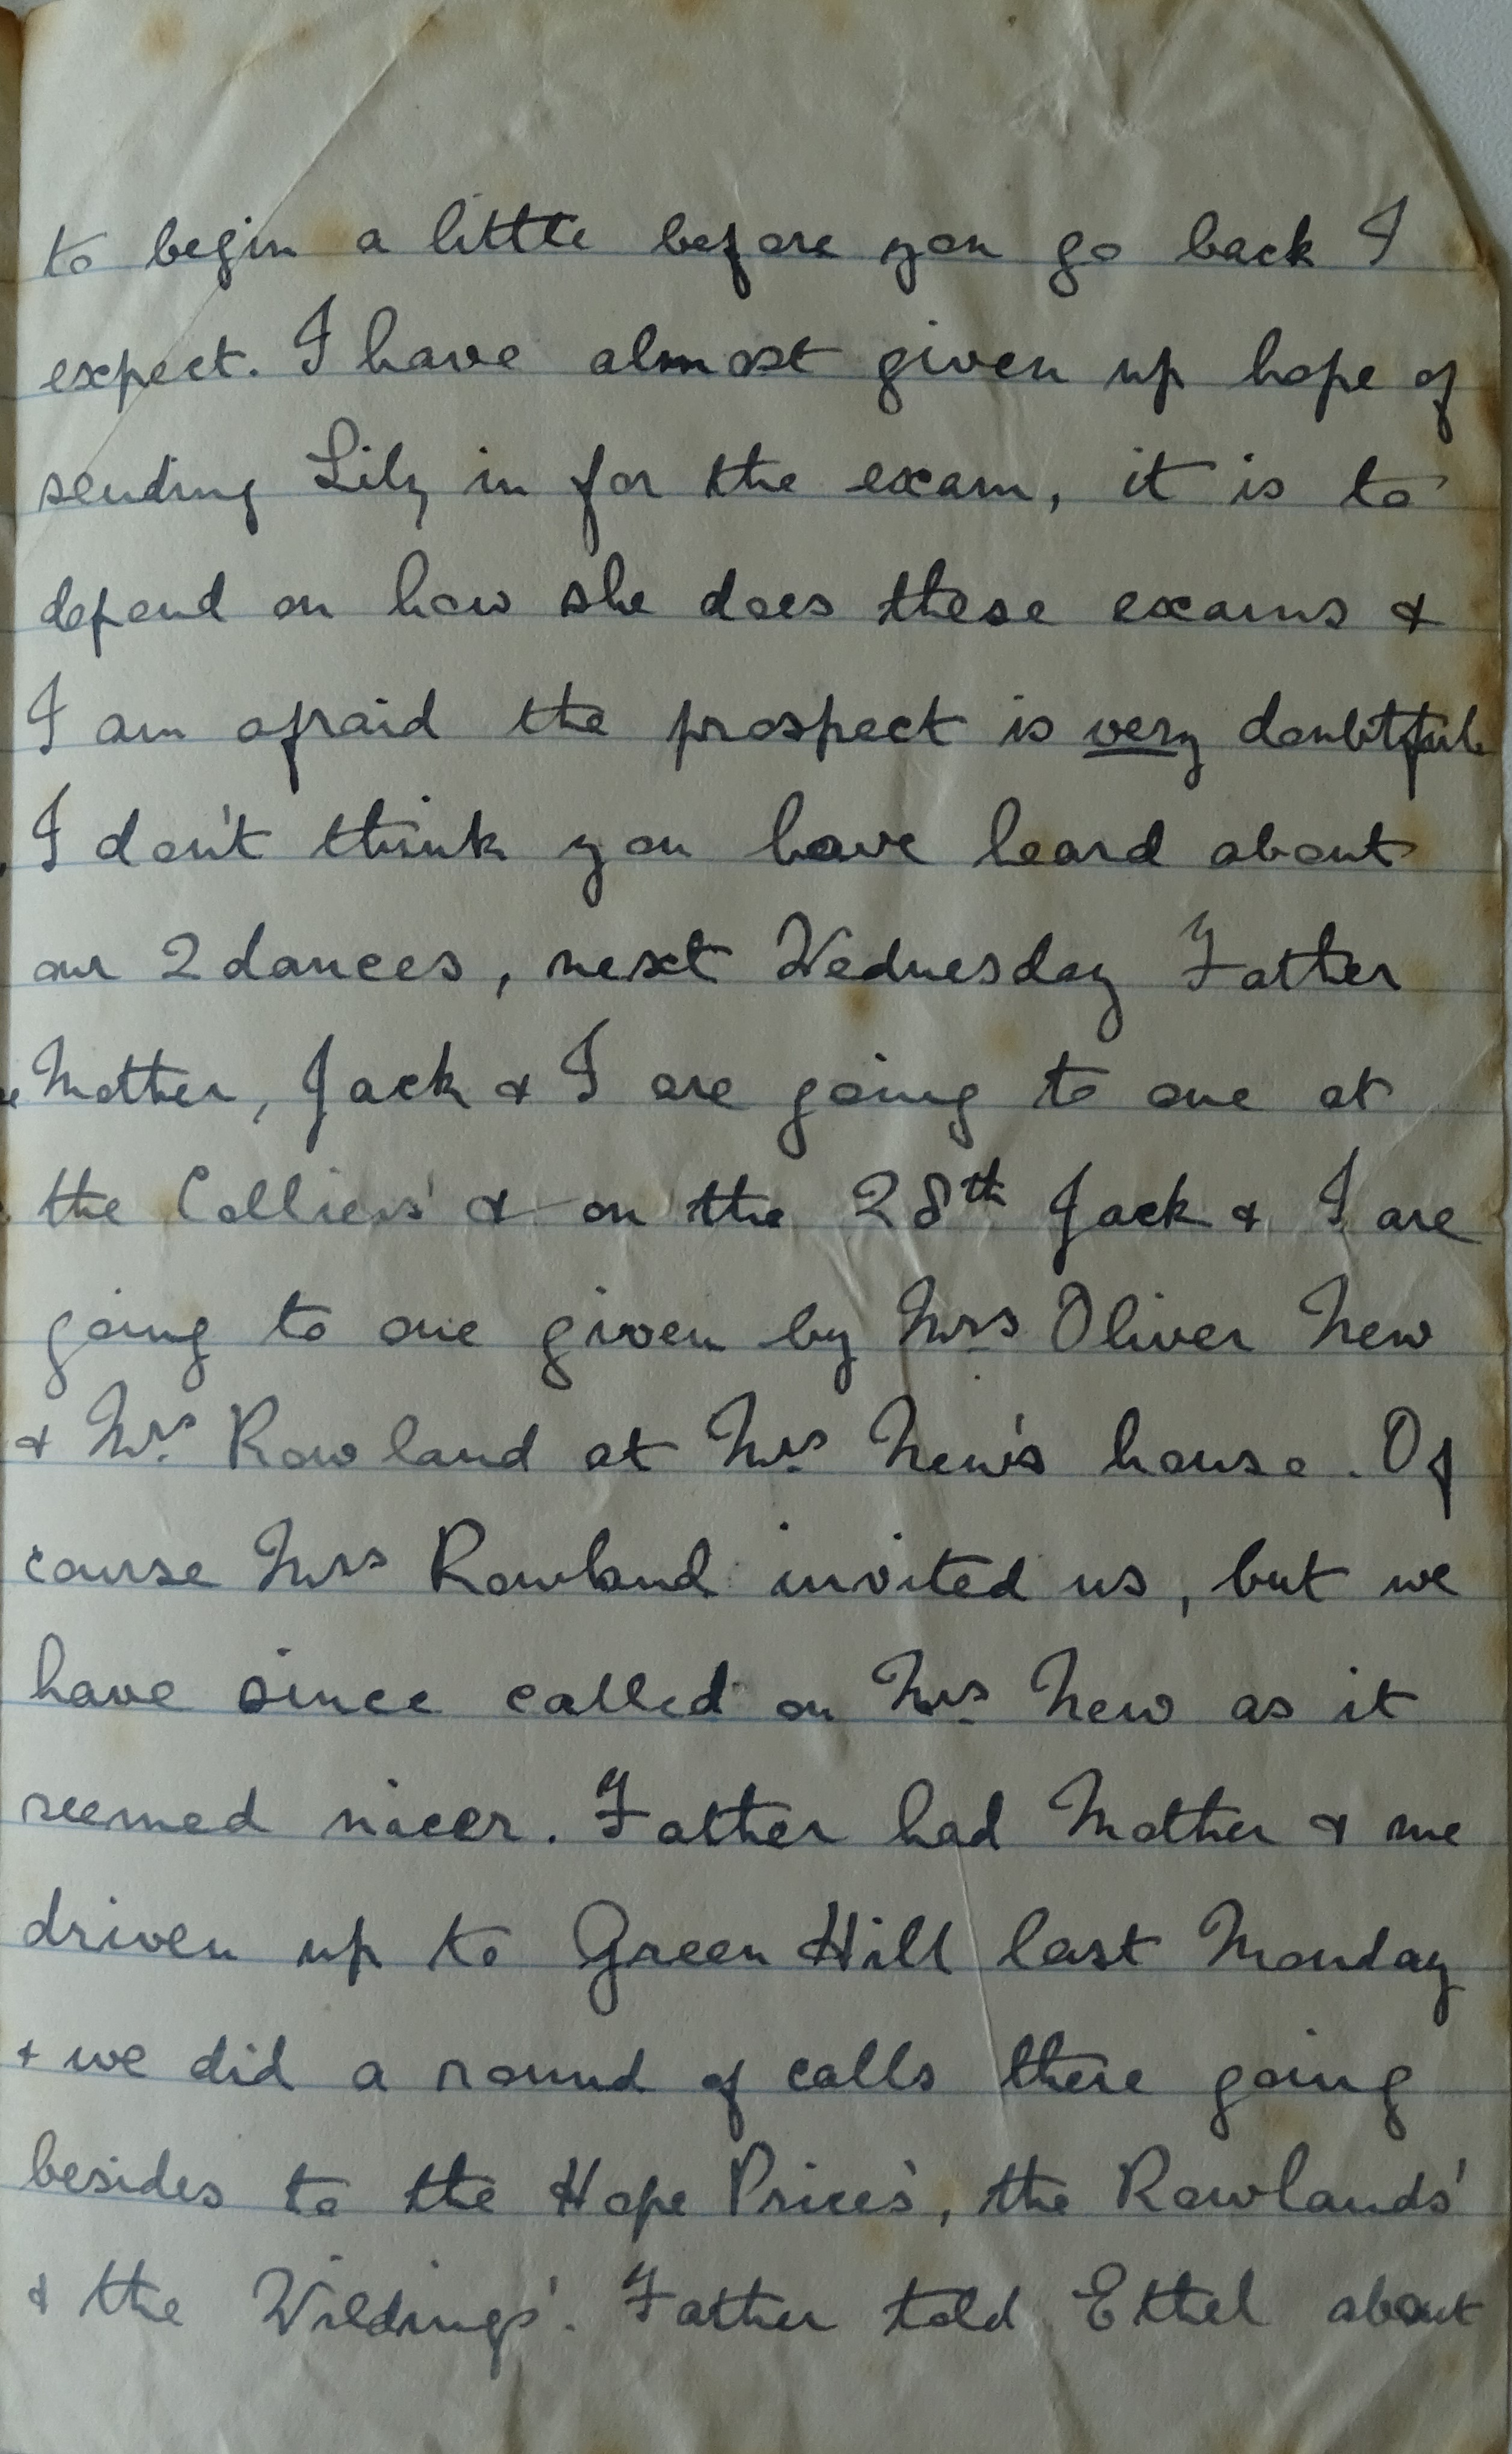 to begin a little before you go back I
expect. I have almost given up hope of
sending Lily in for the exam, it is to
depend on how she does these exams &
I am afraid the prospect is very doubtful
I don't think you have heard about
our 2 dances, next Wednesday Father
Mother, Jack & I are going to one at
the Colliers' & on the 28th Jack & I are
going to one given by Mrs Oliver New
& Mrs Rowland at Mrs New's house. Of
course Mrs Rowland invited us, but we
have since called on Mrs New as it
seemed nicer. Father had Mother & me
driven up to Green Hill last Monday
& we did a round of calls there going
besides to the Hope Prices', the Rowlands'
& the Wildings'. Father told Ethel about